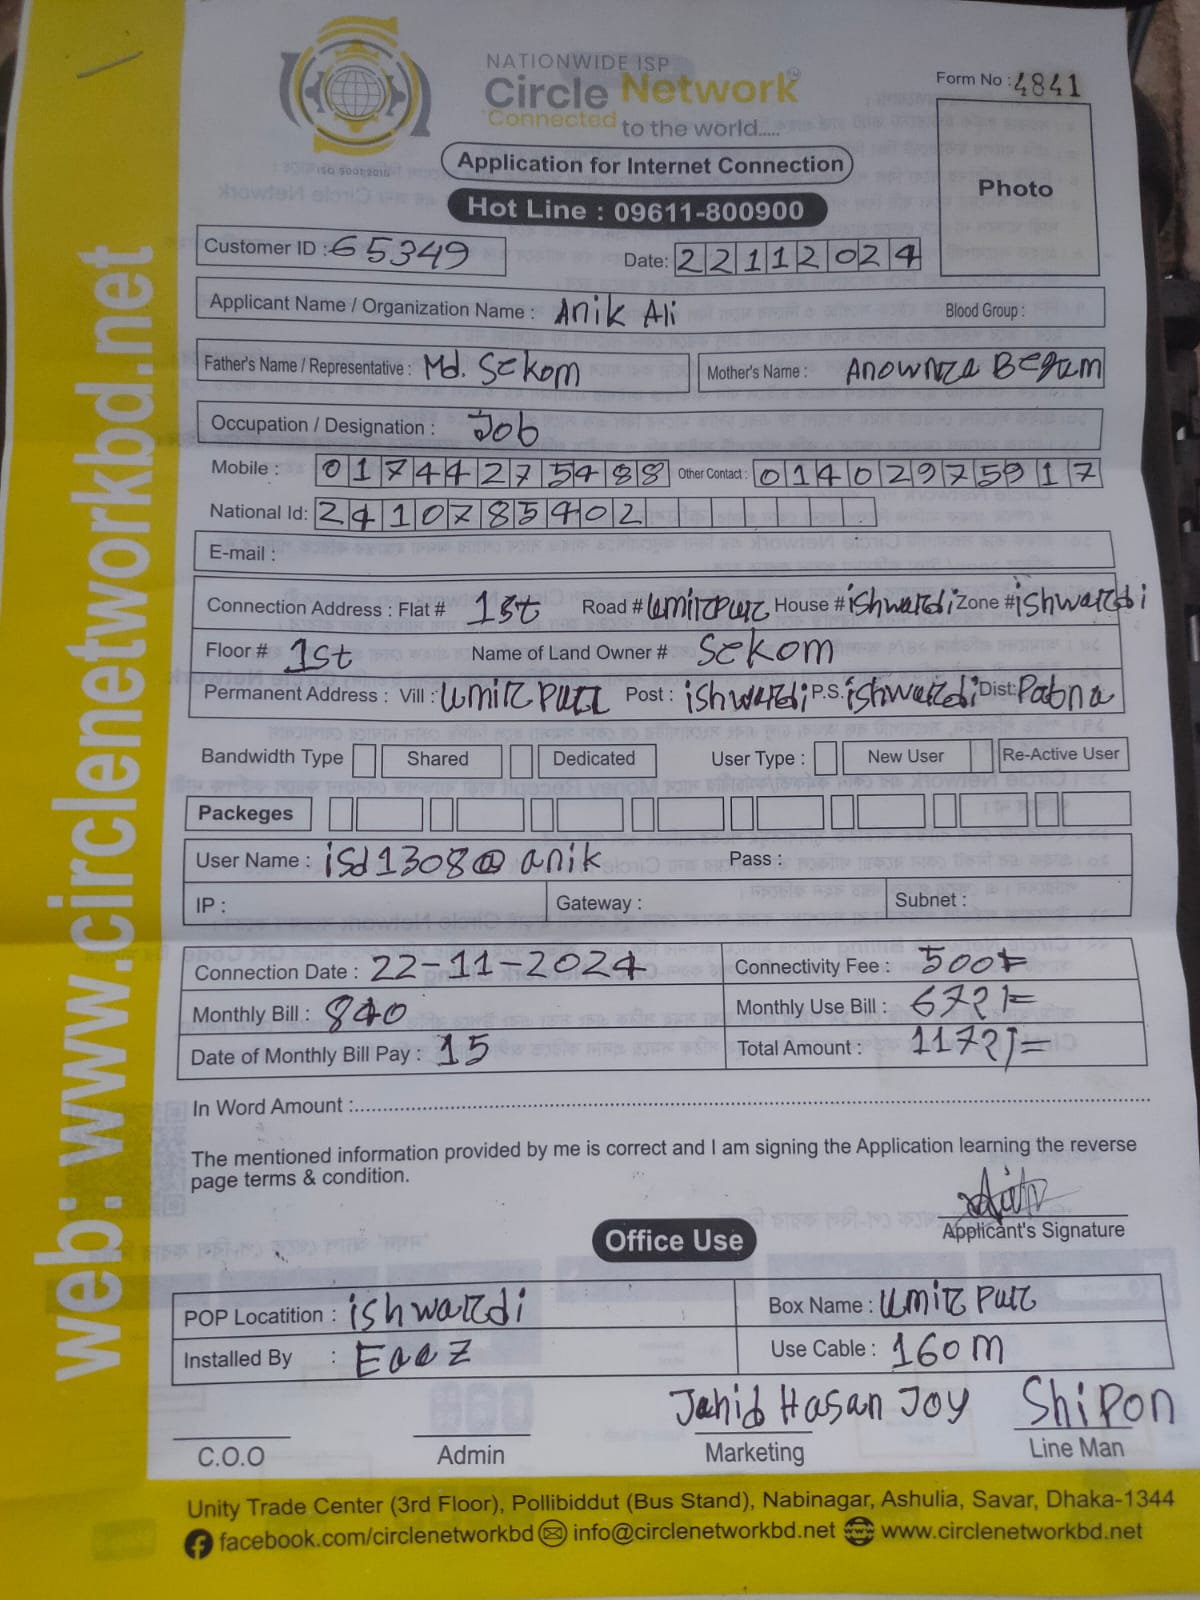 NATIONWIDE ISP
Circle Network
Connected to the world.....
ISO 9001:2015
Form No : 4841
Photo
Application for Internet Connection
Hot Line : 09611-800900
Customer ID : 65349
Date: 22112024
Applicant Name / Organization Name : Anik Ali
Blood Group :
Father's Name / Representative : Md. Sekom
Mother's Name : Anownra Begam
Occupation / Designation : Job
Mobile : 01744275488 Other Contact : 01402975917
National Id: 2410785402
E-mail :
Connection Address : Flat # 1st Road # Umirpur House # ishwardi Zone # ishwardi
Floor # 1st Name of Land Owner # Sekom
Permanent Address : Vill : Umirpur Post : ishwardi P.S. ishwardi Dist: Pabna
Bandwidth Type Shared Dedicated User Type : New User Re-Active User
Packeges
User Name : isd1308@anik Pass :
IP : Gateway : Subnet :
Connection Date : 22-11-2024 Connectivity Fee : 500/=
Monthly Bill : 840 Monthly Use Bill : 672/=
Date of Monthly Bill Pay : 15 Total Amount : 1172/=
In Word Amount :
The mentioned information provided by me is correct and I am signing the Application learning the reverse
page terms & condition.
Applicant's Signature
Office Use
POP Locatition : ishwardi Box Name : Umirpur
Installed By : Use Cable : 160m
Jahid Hasan Joy Shipon
C.O.O Admin Marketing Line Man
Unity Trade Center (3rd Floor), Pollibiddut (Bus Stand), Nabinagar, Ashulia, Savar, Dhaka-1344
facebook.com/circlenetworkbd info@circlenetworkbd.net www.circlenetworkbd.net
web: www.circlenetworkbd.net